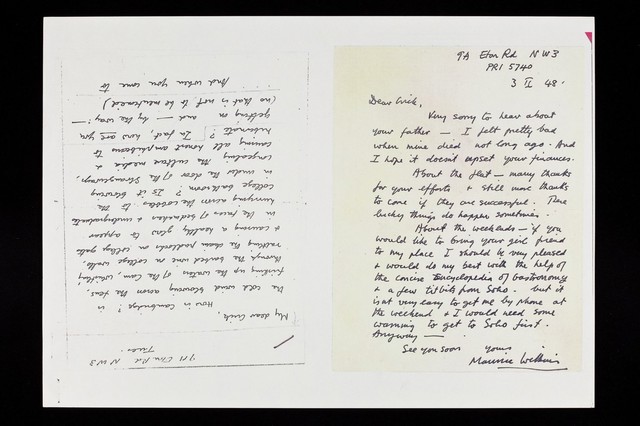 9A Eton Rd NW3
PRI 5740
3 II 48.
Dear Crick,
Very sorry to hear about
your father — I felt pretty bad
when mine died not long ago. And
I hope it doesn't upset your finances.
About the flat — many thanks
for your efforts & still more thanks
to come if they are successful. These
lucky things do happen sometimes.
About the weekends — if you
would like to bring your girl friend
to my place I should be very pleased
& would do my best with the help of
the Concise Encyclopedia of Gastronomy
& a few titbits from Soho. But it
isn't very easy to get me by phone at
the weekend & I would need some
warning to get to Soho first.
Anyway —
See you soon yours
Maurice Wilkins
9A Eton Rd NW3
Tues
My dear Crick,
How is Cambridge? is
the cold wind blowing across the fens,
up the waters of the Cam, whistling
through the
rattling the chain padlocks on college gate
& causing a healthy glow to appear
in the faces of bedmakers & undergraduates
hurrying across the cobbles to the
college bathroom? Is it blowing
in under the door of the Strangeways,
congealing the culture media &
causing all honest amphibians to
hibernate? In fact, how are you
getting on — and — by the way! —
(no that is not to be mentioned)
... And when you come to